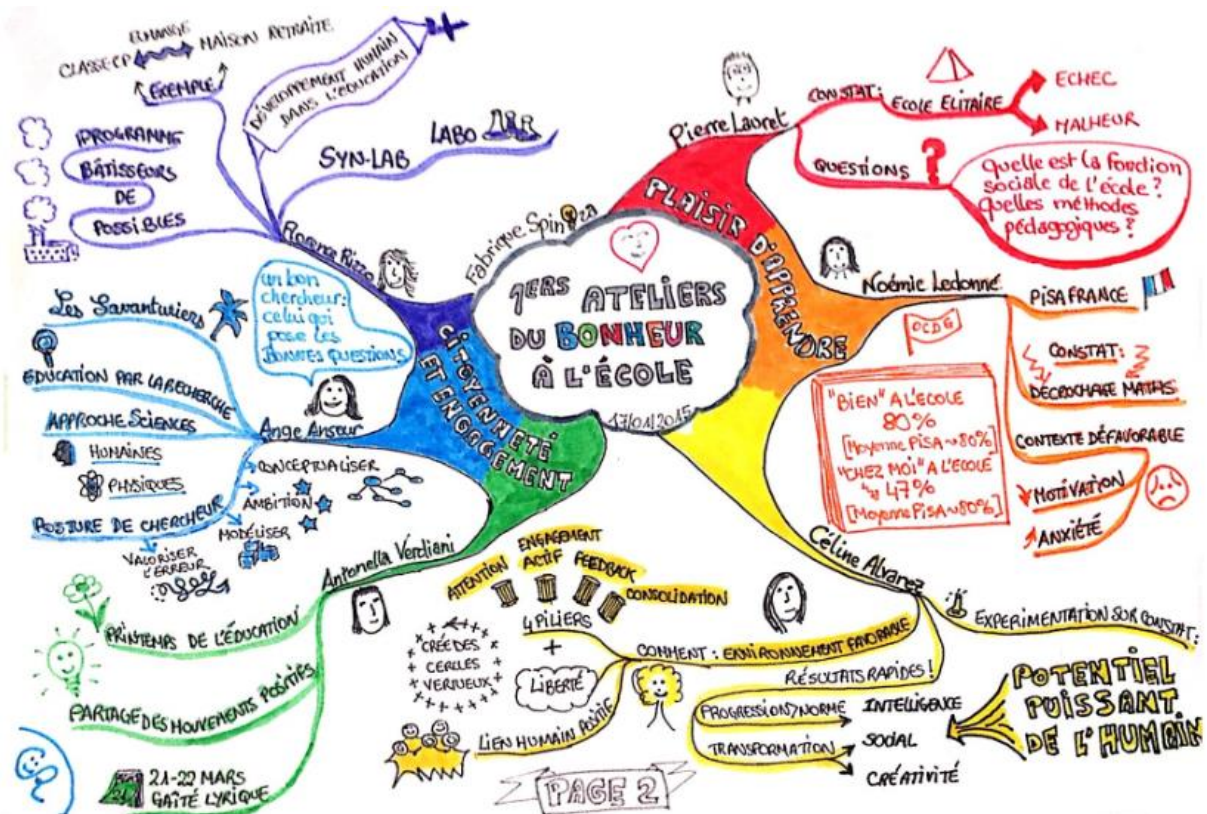 Fabrique Spinoza
1ERS ATELIERS
DU BONHEUR
À L'ÉCOLE
17/01/2015
PLAISIR D'APPRENDRE
Pierre Lauret
CONSTAT:
ECOLE ELITAIRE
ECHEC
MALHEUR
QUESTIONS ?
quelle est la fonction
sociale de l'école?
quelles méthodes
pédagogiques?
Noémie Ledonné
PISA FRANCE
CONSTAT:
DÉCROCHAGE MATHS
CONTEXTE DÉFAVORABLE
MOTIVATION
ANXIÉTÉ
OCDE
"BIEN" A L'ECOLE
80%
[Moyenne PISA ~80%]
"CHEZ MOI" A L'ECOLE
47%
[Moyenne PISA ~80%]
Céline Alvarez
EXPERIMENTATION SUR CONSTAT:
POTENTIEL
PUISSANT
DE L'HUMAIN
RÉSULTATS RAPIDES!
PROGRESSION > NORME
TRANSFORMATION
INTELLIGENCE
SOCIAL
CRÉATIVITÉ
COMMENT : ENVIRONNEMENT FAVORABLE
4 PILIERS
+
LIBERTÉ
LIEN HUMAIN POSITIF
ATTENTION
ENGAGEMENT
ACTIF
FEEDBACK
CONSOLIDATION
CRÉE DES
CERCLES
VERTUEUX
PAGE 2
CITOYENNETÉ
ET ENGAGEMENT
SYN-LAB
LABO
DÉVELOPPEMENT HUMAIN
DANS L'ÉDUCATION
EXEMPLE
CLASSE CP
ECHANGE
MAISON RETRAITE
PROGRAMME
BÂTISSEURS
DE
POSSIBLES
Ange Ansour
un bon
chercheur:
celui qui
pose les
BONNES QUESTIONS
Les Savanturiers
EDUCATION PAR LA RECHERCHE
APPROCHE SCIENCES
HUMAINES
PHYSIQUES
POSTURE DE CHERCHEUR
CONCEPTUALISER
AMBITION
MODÉLISER
VALORISER
L'ERREUR
Antonella Verdiani
PRINTEMPS DE L'ÉDUCATION
PARTAGE DES MOUVEMENTS POSITIFS
21-22 MARS
GAÎTÉ LYRIQUE